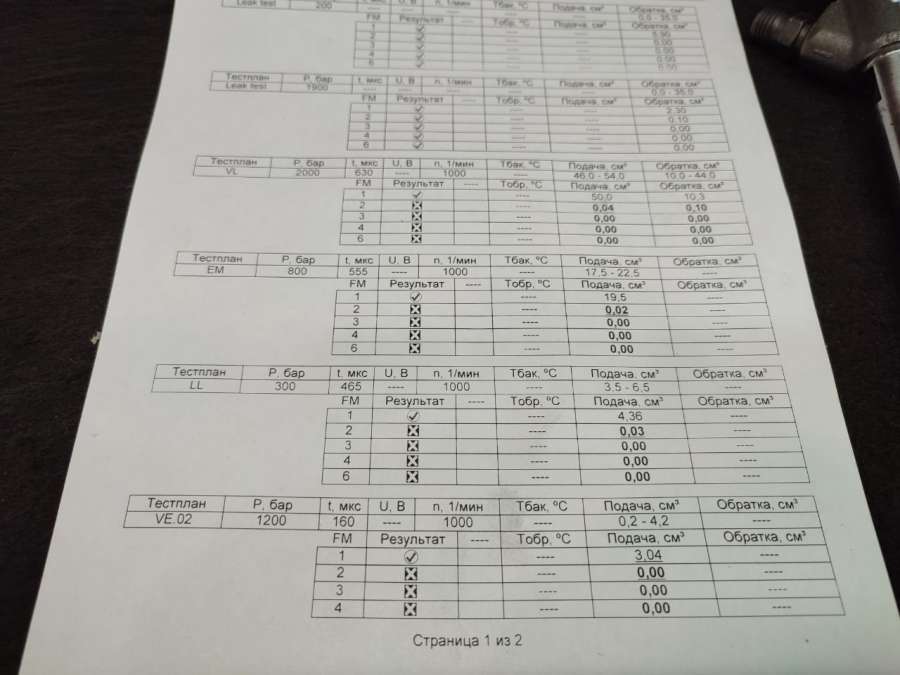 Leak test 200 ---- ---- ---- ---- ---- 0,0 - 35,0
FM Результат ---- Тобр, ºС Подача, см³ Обратка, см³
1 ---- ----
2 ---- ---- 0,00
3 ---- ---- 0,00
4 ---- ---- 0,00
6 ---- ---- 0,00
Тестплан Р, бар t, мкс U, В n, 1/мин Тбак, ºС Подача, см³ Обратка, см³
Leak test 1900 ---- ---- ---- ---- ---- 0,0 - 35,0
FM Результат ---- Тобр, ºС Подача, см³ Обратка, см³
1 ---- ---- 2,30
2 ---- ---- 0,10
3 ---- ---- 0,00
4 ---- ---- 0,00
6 ---- ---- 0,00
Тестплан Р, бар t, мкс U, В n, 1/мин Тбак, ºС Подача, см³ Обратка, см³
VL 2000 630 ---- 1000 ---- 46,0 - 54,0 10,0 - 44,0
FM Результат ---- Тобр, ºС Подача, см³ Обратка, см³
1 ---- 50,0 10,3
2 ---- 0,04 0,10
3 ---- 0,00 0,00
4 ---- 0,00 0,00
6 ---- 0,00 0,00
Тестплан Р, бар t, мкс U, В n, 1/мин Тбак, ºС Подача, см³ Обратка, см³
EM 800 555 ---- 1000 ---- 17,5 - 22,5 ----
FM Результат ---- Тобр, ºС Подача, см³ Обратка, см³
1 ---- 19,5 ----
2 ---- 0,02 ----
3 ---- 0,00 ----
4 ---- 0,00 ----
6 ---- 0,00 ----
Тестплан Р, бар t, мкс U, В n, 1/мин Тбак, ºС Подача, см³ Обратка, см³
LL 300 465 ---- 1000 ---- 3,5 - 6,5 ----
FM Результат ---- Тобр, ºС Подача, см³ Обратка, см³
1 ---- 4,36 ----
2 ---- 0,03 ----
3 ---- 0,00 ----
4 ---- 0,00 ----
6 ---- 0,00 ----
Тестплан Р, бар t, мкс U, В n, 1/мин Тбак, ºС Подача, см³ Обратка, см³
VE.02 1200 160 ---- 1000 ---- 0,2 - 4,2 ----
FM Результат ---- Тобр, ºС Подача, см³ Обратка, см³
1 ---- 3,04 ----
2 ---- 0,00 ----
3 ---- 0,00 ----
4 ---- 0,00 ----
Страница 1 из 2